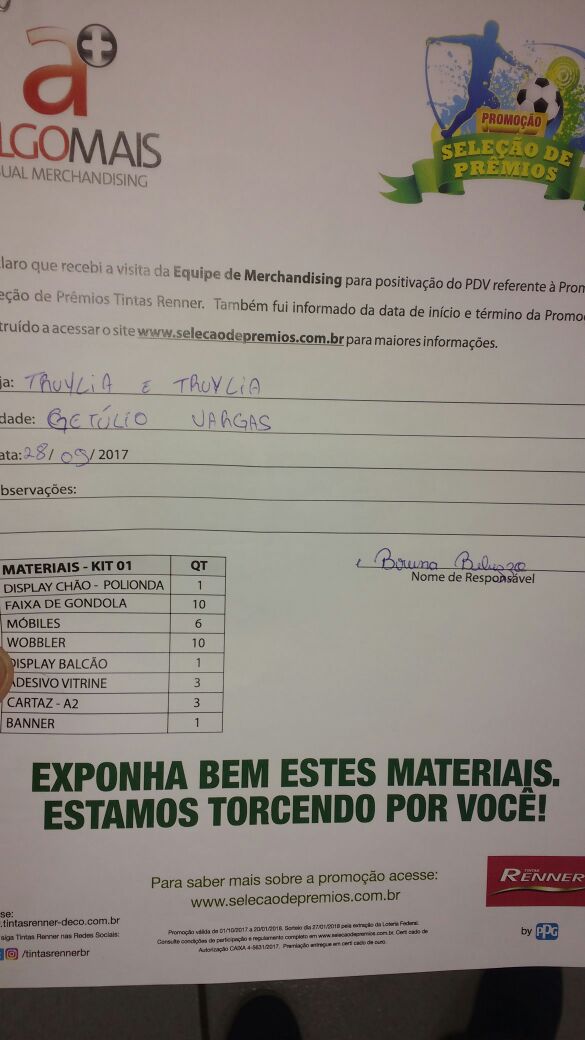 a+
LGOMAIS
UAL MERCHANDISING
PROMOÇÃO
SELEÇÃO DE
PRÊMIOS
laro que recebi a visita da Equipe de Merchandising para positivação do PDV referente à Prom
eção de Prêmios Tintas Renner. Também fui informado da data de início e término da Promoç
truído a acessar o site www.selecaodepremios.com.br para maiores informações.
ja: TRUYLIA E TRUYLIA
dade: GETÚLIO VARGAS
ata: 28/09/2017
bservações:
Nome de Responsável
MATERIAIS - KIT 01 QT
DISPLAY CHÃO - POLIONDA 1
FAIXA DE GONDOLA 10
MÓBILES 6
WOBBLER 10
DISPLAY BALCÃO 1
ADESIVO VITRINE 3
CARTAZ - A2 3
BANNER 1
EXPONHA BEM ESTES MATERIAIS.
ESTAMOS TORCENDO POR VOCÊ!
Para saber mais sobre a promoção acesse:
www.selecaodepremios.com.br
TINTAS
RENNER
by PPG
se:
.tintasrenner-deco.com.br
siga Tintas Renner nas Redes Sociais:
/tintasrennerbr
Promoção válida de 01/10/2017 a 20/01/2018. Sorteio dia 27/01/2018 pela extração da Loteria Federal.
Consulte condições de participação e regulamento completo em www.selecaodepremios.com.br. Certi cado de
Autorização CAIXA 4-5631/2017. Premiação entregue em certi cado de ouro.